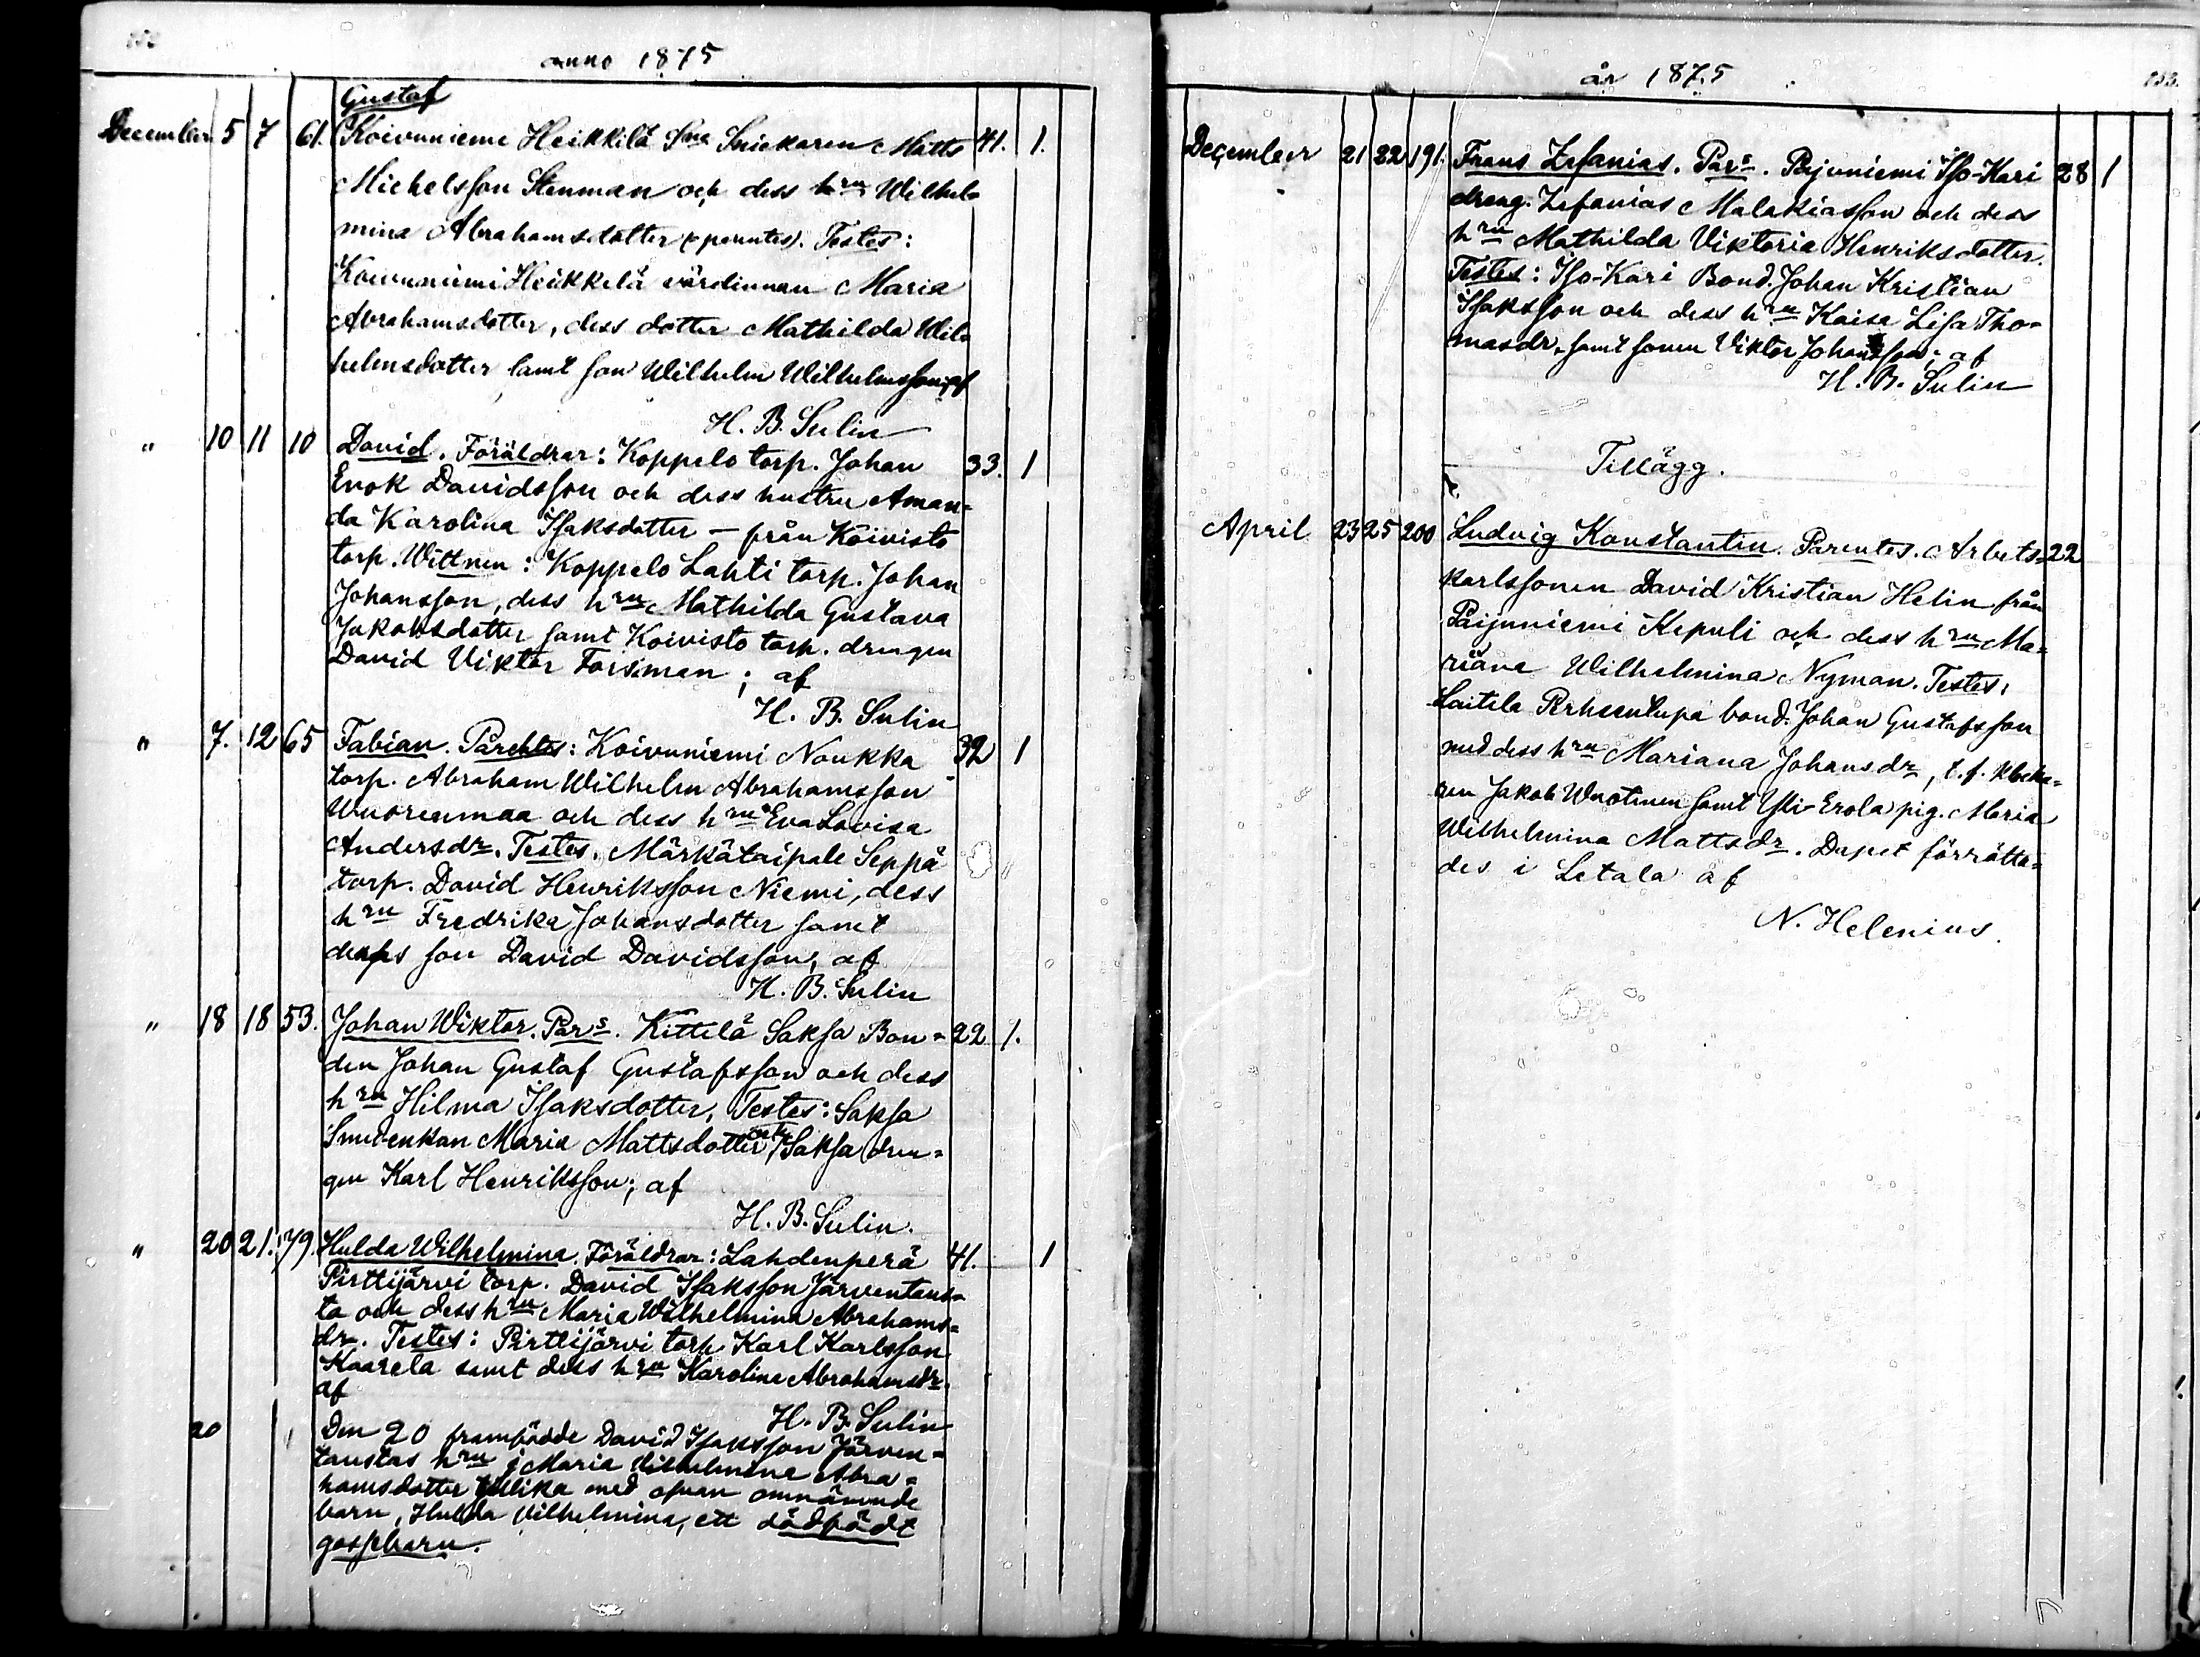 152
anno 1875
Gustaf
December 5 7 61. Koivunieme Heikkilä Snickaren Matts 41. 1.
Michelsson Stenman och dess hru Wilhel-
mina Abrahamsdotter (parentes). Testes:
Koivuniemi Heikkelä värdinnan Maria
Abrahamsdotter, dess dotter Mathilda Wil-
helmsdotter samt son Wilhelm Wilhelmsson; af
H. B. Sulin
" 10 11 10 David. Föräldrar: Koppelo torp. Johan 33. 1
Enok Davidsson och dess hustru Aman-
da Karolina Isaksdotter — från Koivisto
torp. Wittnen: Koppelo Lahti torp. Johan
Johansson, dess hru Mathilda Gustava
Jakobsdotter samt Koivisto torp. drengen
David Viktor Forsman; af
H. B. Sulin
" 7. 12 65 Fabian. Parentes: Koivuniemi Noukka 32 1
torp. Abraham Wilhelm Abrahamsson
Wuorenmaa och dess hru Eva Lovisa
Andersdr. Testes. Märkätaipale Seppä
torp. David Henriksson Niemi, dess
hru Fredrika Johansdotter samt
dess son David Davidsson, af
H. B. Sulin
" 18 18 53. Johan Wiktor. Pars. Kittelä Saksa Bon- 22 1.
den Johan Gustaf Gustafsson och dess
hru Hilma Isaksdotter, Testes: Saksa
Smedenkan Maria Mattsdotter och Saksa dren-
gen Karl Henriksson; af
H. B. Sulin.
" 20 21. 79. Hulda Wilhelmina. Föräldrar: Lahdenperä 41. 1
Pirttijärvi torp. David Isaksson Järventaus-
ta och dess hru Maria Wilhelmina Abrahams-
dr. Testes: Pirttijärvi torp Karl Karlsson
Kaarela samt dess hru Karolina Abrahamsdr.
af
H. B. Sulin
20 Den 20 framfödde David Isaksson Järven-
taustas hru Maria Vilhelmina Abra-
hamsdotter tillika med ofvan omnämnde
barn, Hulda Vilhelmina, ett dödfödt
gossebarn.
år 1875
153.
December 21 22 191. Frans Zefanias. Pars. Pajuniemi Iso-Kari 28 1
dreng. Zefanias Malakiasson och dess
hru Mathilda Viktoria Henriksdotter.
Testes: Iso-Kari Bond. Johan Kristian
Isaksson och dess hru Kaisa Lisa Tho-
masdr. samt sonen Viktor Johansson; af
H. B. Sulin
Tillägg.
April 23 25 200 Ludvig Konstantin. Parentes. Arbets- 22
karlssonen David Kristian Helin från
Päijuniemi Kepuli och dess hru Ma-
riana Wilhelmina Nyman. Testes:
Laitila bond. Johan Gustafsson
med dess hru Mariana Johansdr, t.f. klocka-
ren Jakob Wuotinen samt Yli-Erola pig. Maria
Wilhelmina Mattsdr. Dopet förrätta-
des i Letala af
N. Helenius.